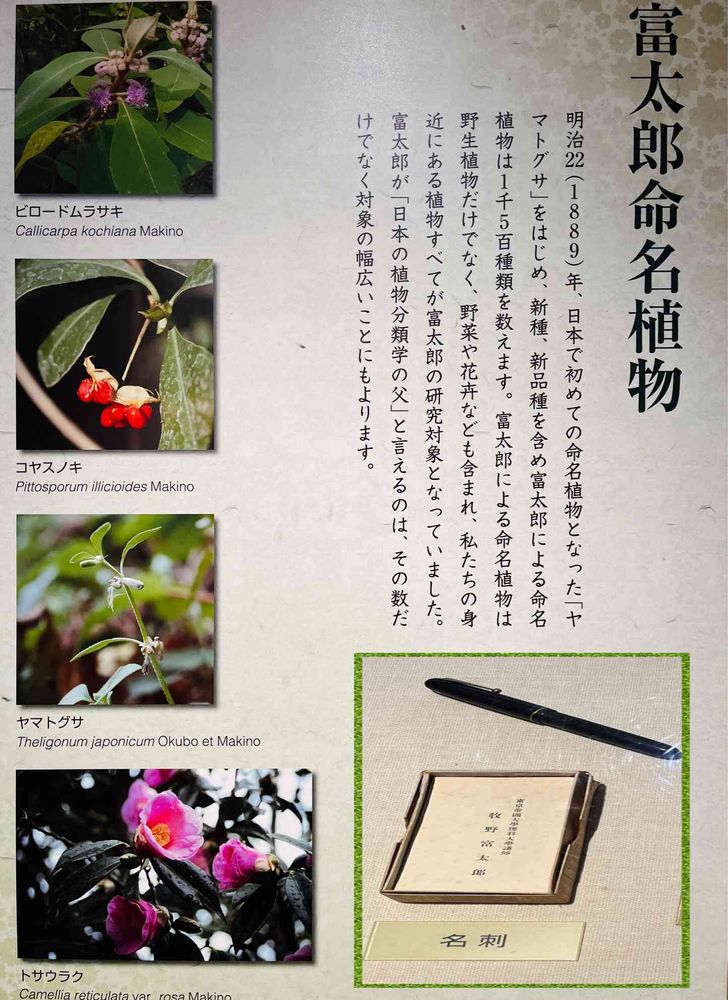 富太郎命名植物
明治22(1889)年、日本で初めての命名植物となった「ヤ
マトグサ」をはじめ、新種、新品種を含め富太郎による命名
植物は1千5百種類を数えます。富太郎による命名植物は
野生植物だけでなく、野菜や花卉なども含まれ、私たちの身
近にある植物すべてが富太郎の研究対象となっていました。
富太郎が「日本の植物分類学の父」と言えるのは、その数だ
けでなく対象の幅広いことにもよります。
ビロードムラサキ
Callicarpa kochiana Makino
コヤスノキ
Pittosporum illicioides Makino
ヤマトグサ
Theligonum japonicum Okubo et Makino
トサウラク
Camellia reticulata var. rosa Makino
東京帝國大學理科大學講師
牧野富太郎
名刺